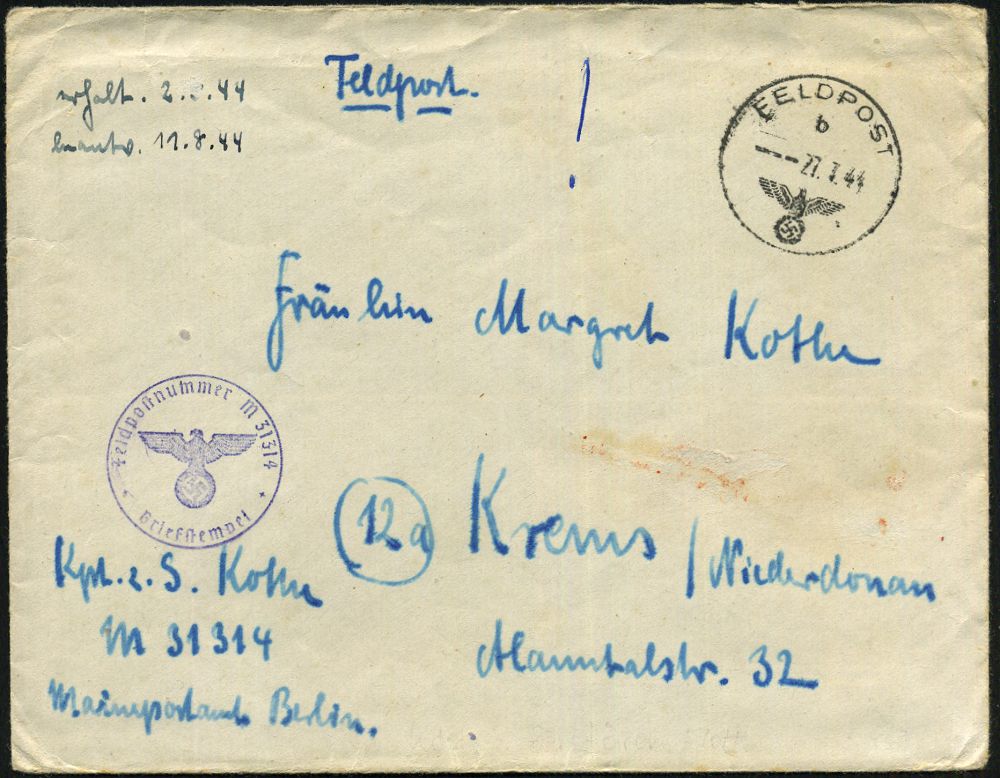 erhalt. 2.8.44
beantw. 11.8.44
Feldpost. !
FELDPOST
b
27.7.44
Fräulein Margret Kothe
Feldpostnummer M 31314
Briefstempel
(12a) Krems / Niederdonau
Kpt. z. S. Kothe
M 31314
Alauntalstr. 32
Marinepostamt Berlin.